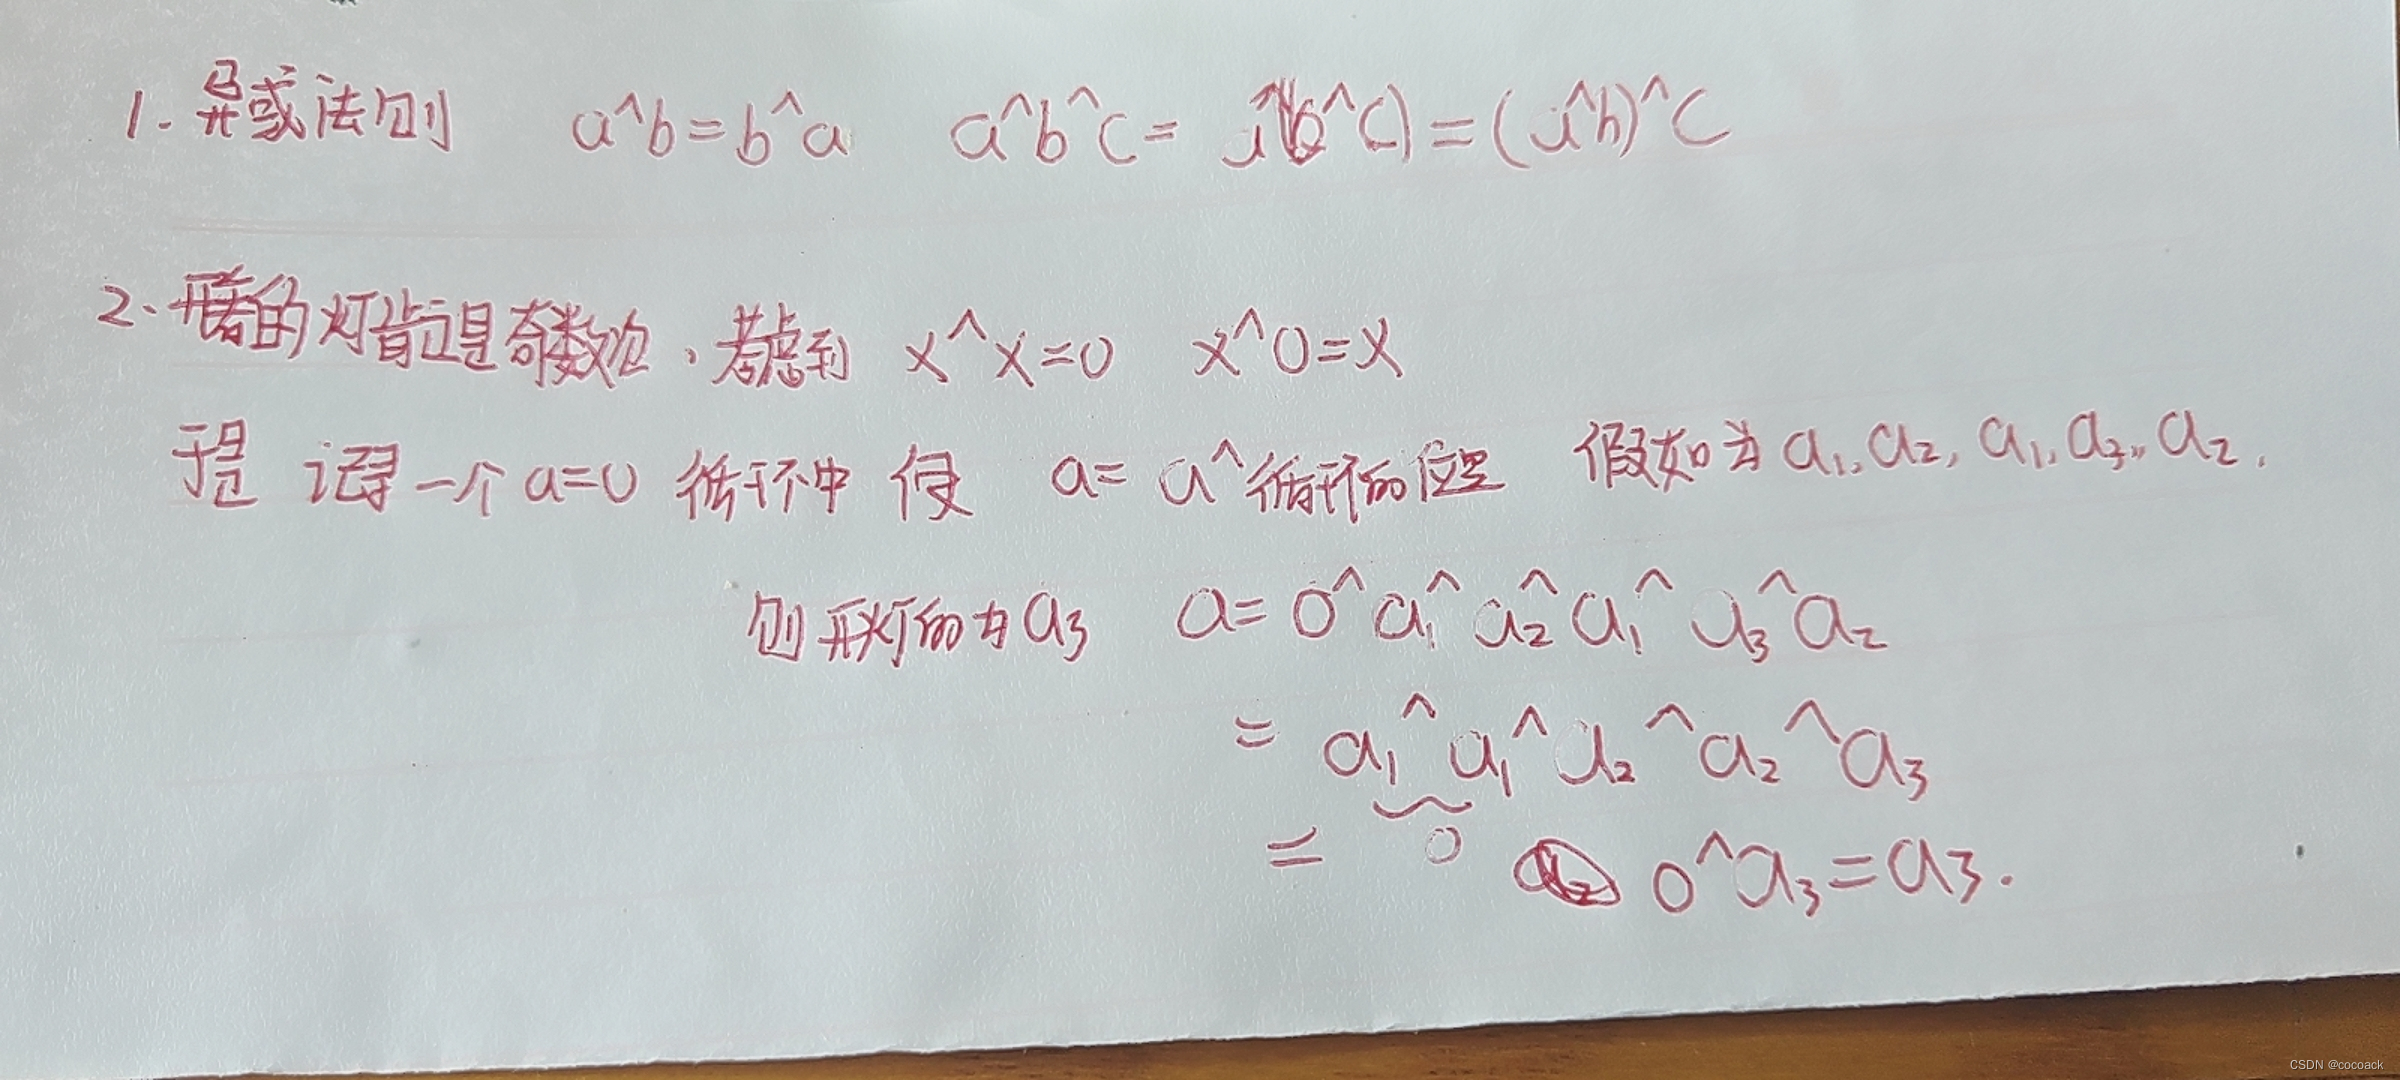 1. 异或法则 a^b=b^a a^b^c= a^(b^c)=(a^b)^c
2. 开着的灯肯定是奇数次，考虑到 x^x=0 x^0=x
于是 记录一个a=0 循环中 使 a= a^循环的位置 假如为a₁, a₂, a₁, a₃, a₂,
则开灯的为a₃ a= 0^a₁^a₂^a₁^a₃^a₂
= a₁^a₁^a₂^a₂^a₃
= 0 0^a₃=a₃.
CSDN @cocoack